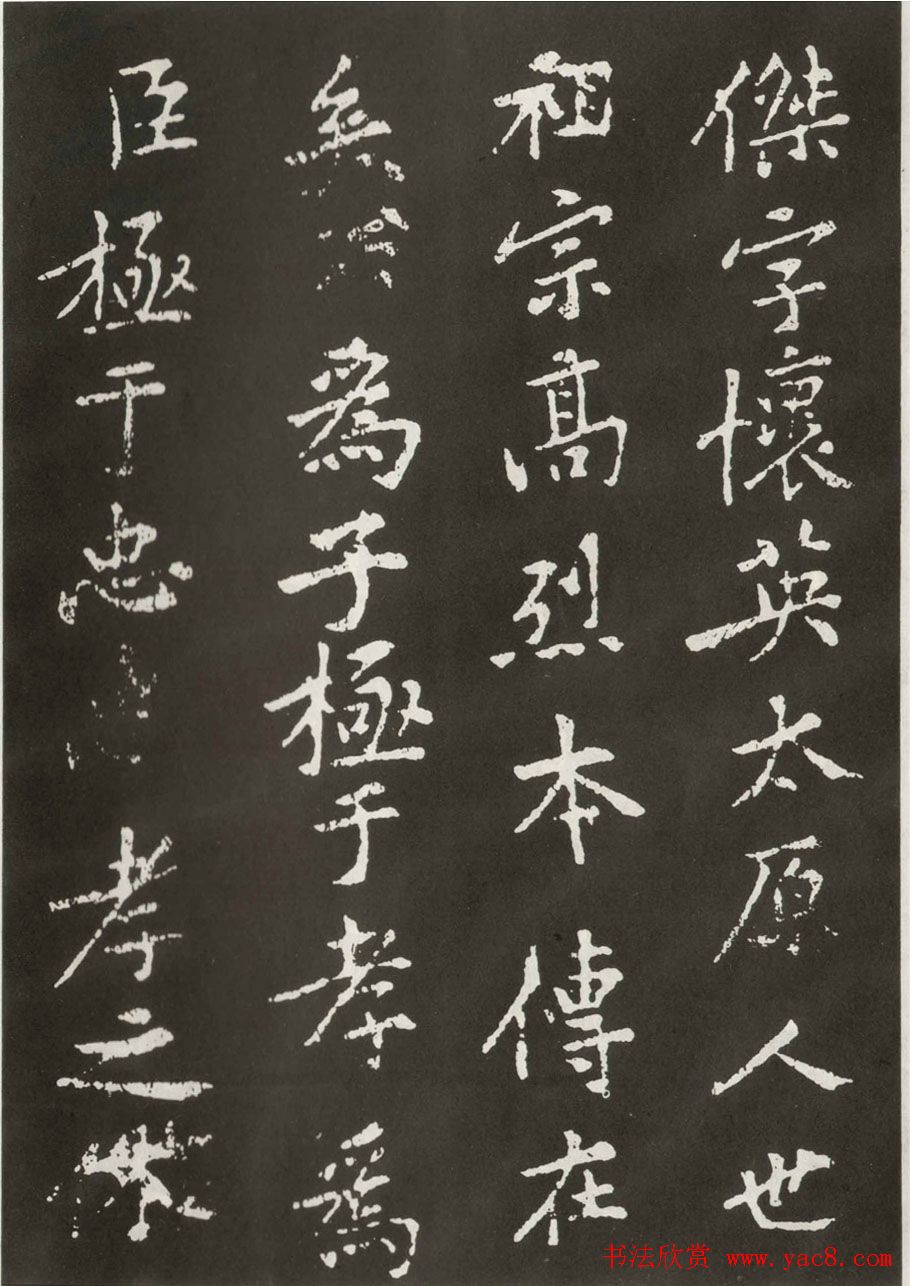 傑字懷英太原人世
祖宗高烈本傳在
矣為子極于孝為
臣極于忠孝之
书法欣赏 www.yac8.com